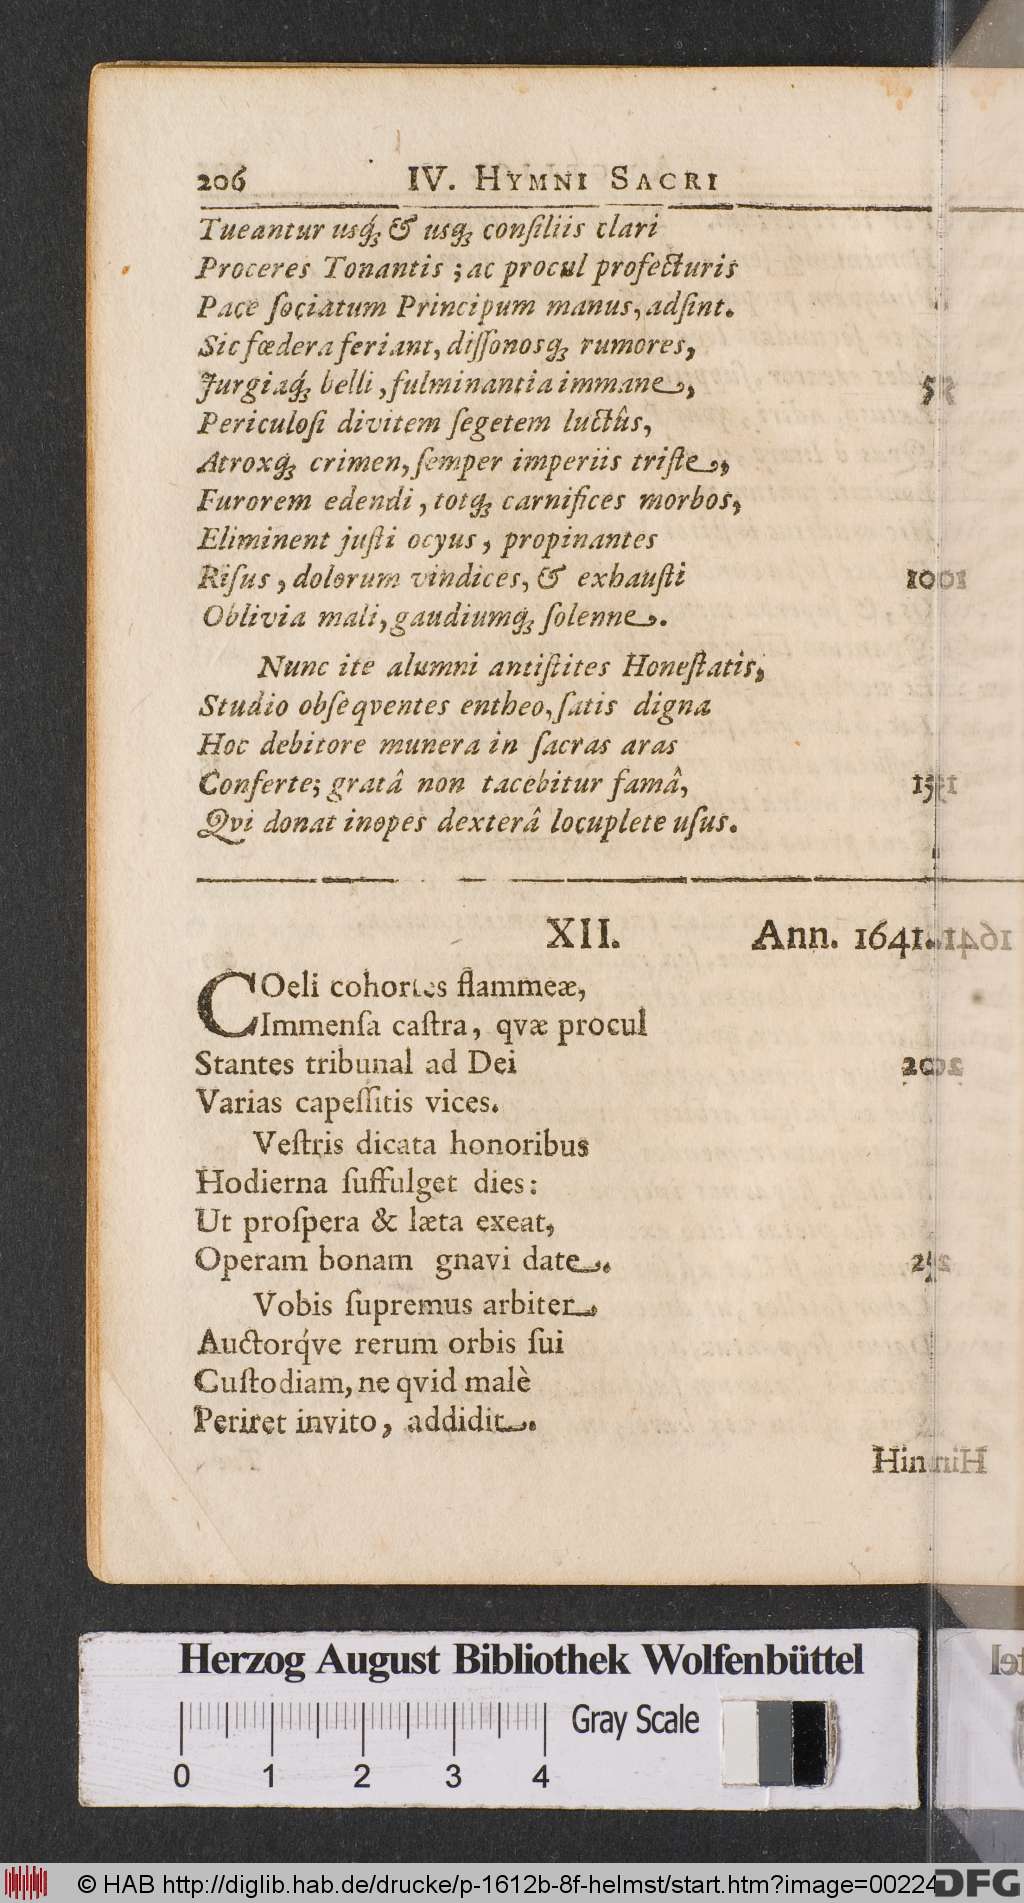 206 IV. HYMNI SACRI
Tueantur usq́; & usq; conſiliis clari
Proceres Tonantis ; ac procul profecturis
Pace ſociatum Principum manus, adſint.
Sic fœdera feriant, diſſonosq; rumores,
Jurgiaq́; belli , fulminantia immane, 55
Periculoſi divitem ſegetem luctûs,
Atroxq́; crimen, ſemper imperiis triſte,
Furorem edendi , totq; carnifices morbos,
Eliminent juſti ocyus , propinantes
Riſus , dolorum vindices, & exhauſti 1001
Oblivia mali, gaudiumq́; ſolenne.
Nunc ite alumni antiſtites Honeſtatis,
Studio obſeqventes entheo, ſatis digna
Hoc debitore munera in ſacras aras
Conferte; gratâ non tacebitur famâ, 151
Qvi donat inopes dexterâ locuplete uſus.
XII. Ann. 1641.
COeli cohortes flammeæ,
Immenſa caſtra, qvæ procul
Stantes tribunal ad Dei
Varias capeſſitis vices.
Veſtris dicata honoribus
Hodierna ſuffulget dies:
Ut proſpera & læta exeat,
Operam bonam gnavi date.
Vobis ſupremus arbiter,
Auctorq́ve rerum orbis ſui
Cuſtodiam, ne qvid malè
Periret invito, addidit.
Hin
Herzog August Bibliothek Wolfenbüttel
Gray Scale
0 1 2 3 4
© HAB http://diglib.hab.de/drucke/p-1612b-8f-helmst/start.htm?image=00224
DFG